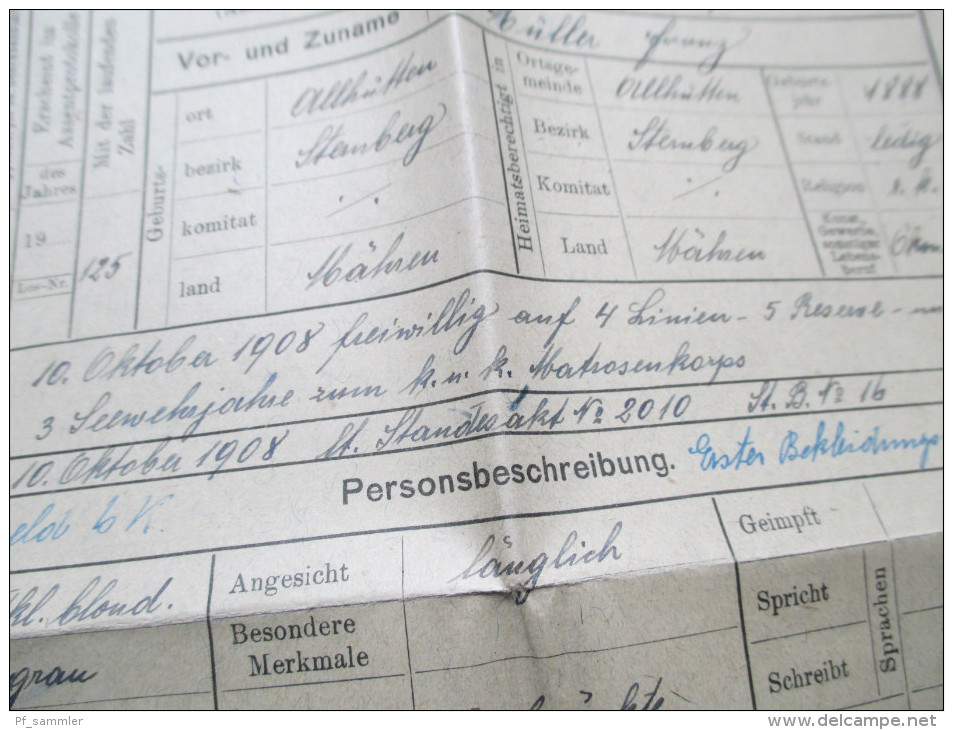 Erscheint im
Assentprotokolle
des
Jahres
19
Los-Nr.
Mit der laufenden
Zahl
125
Vor- und Zuname
Müller Franz
Geburts-
ort
Allhütten
bezirk
Sternberg
komitat
./.
land
Mähren
Heimatsberechtigt in
Ortsge-
meinde
Allhütten
Bezirk
Sternberg
Komitat
./.
Land
Mähren
Geburts-
jahr
1888
Stand
ledig
Religion
r. k.
Kunst,
Gewerbe,
sonstiger
Lebens-
beruf
10. Oktober 1908 freiwillig auf 4 Linien- 5 Reserve-
3 Seewehrjahre zum k. u. k. Matrosenkorps
10. Oktober 1908 lt. Standesakt No 2010 St. B. No 16
Personsbeschreibung.
Erster Bekleidungs
blond.
Angesicht
länglich
Geimpft
grau
Besondere
Merkmale
Spricht
Schreibt
Sprachen
Pf_sammler
www.delcampe.net